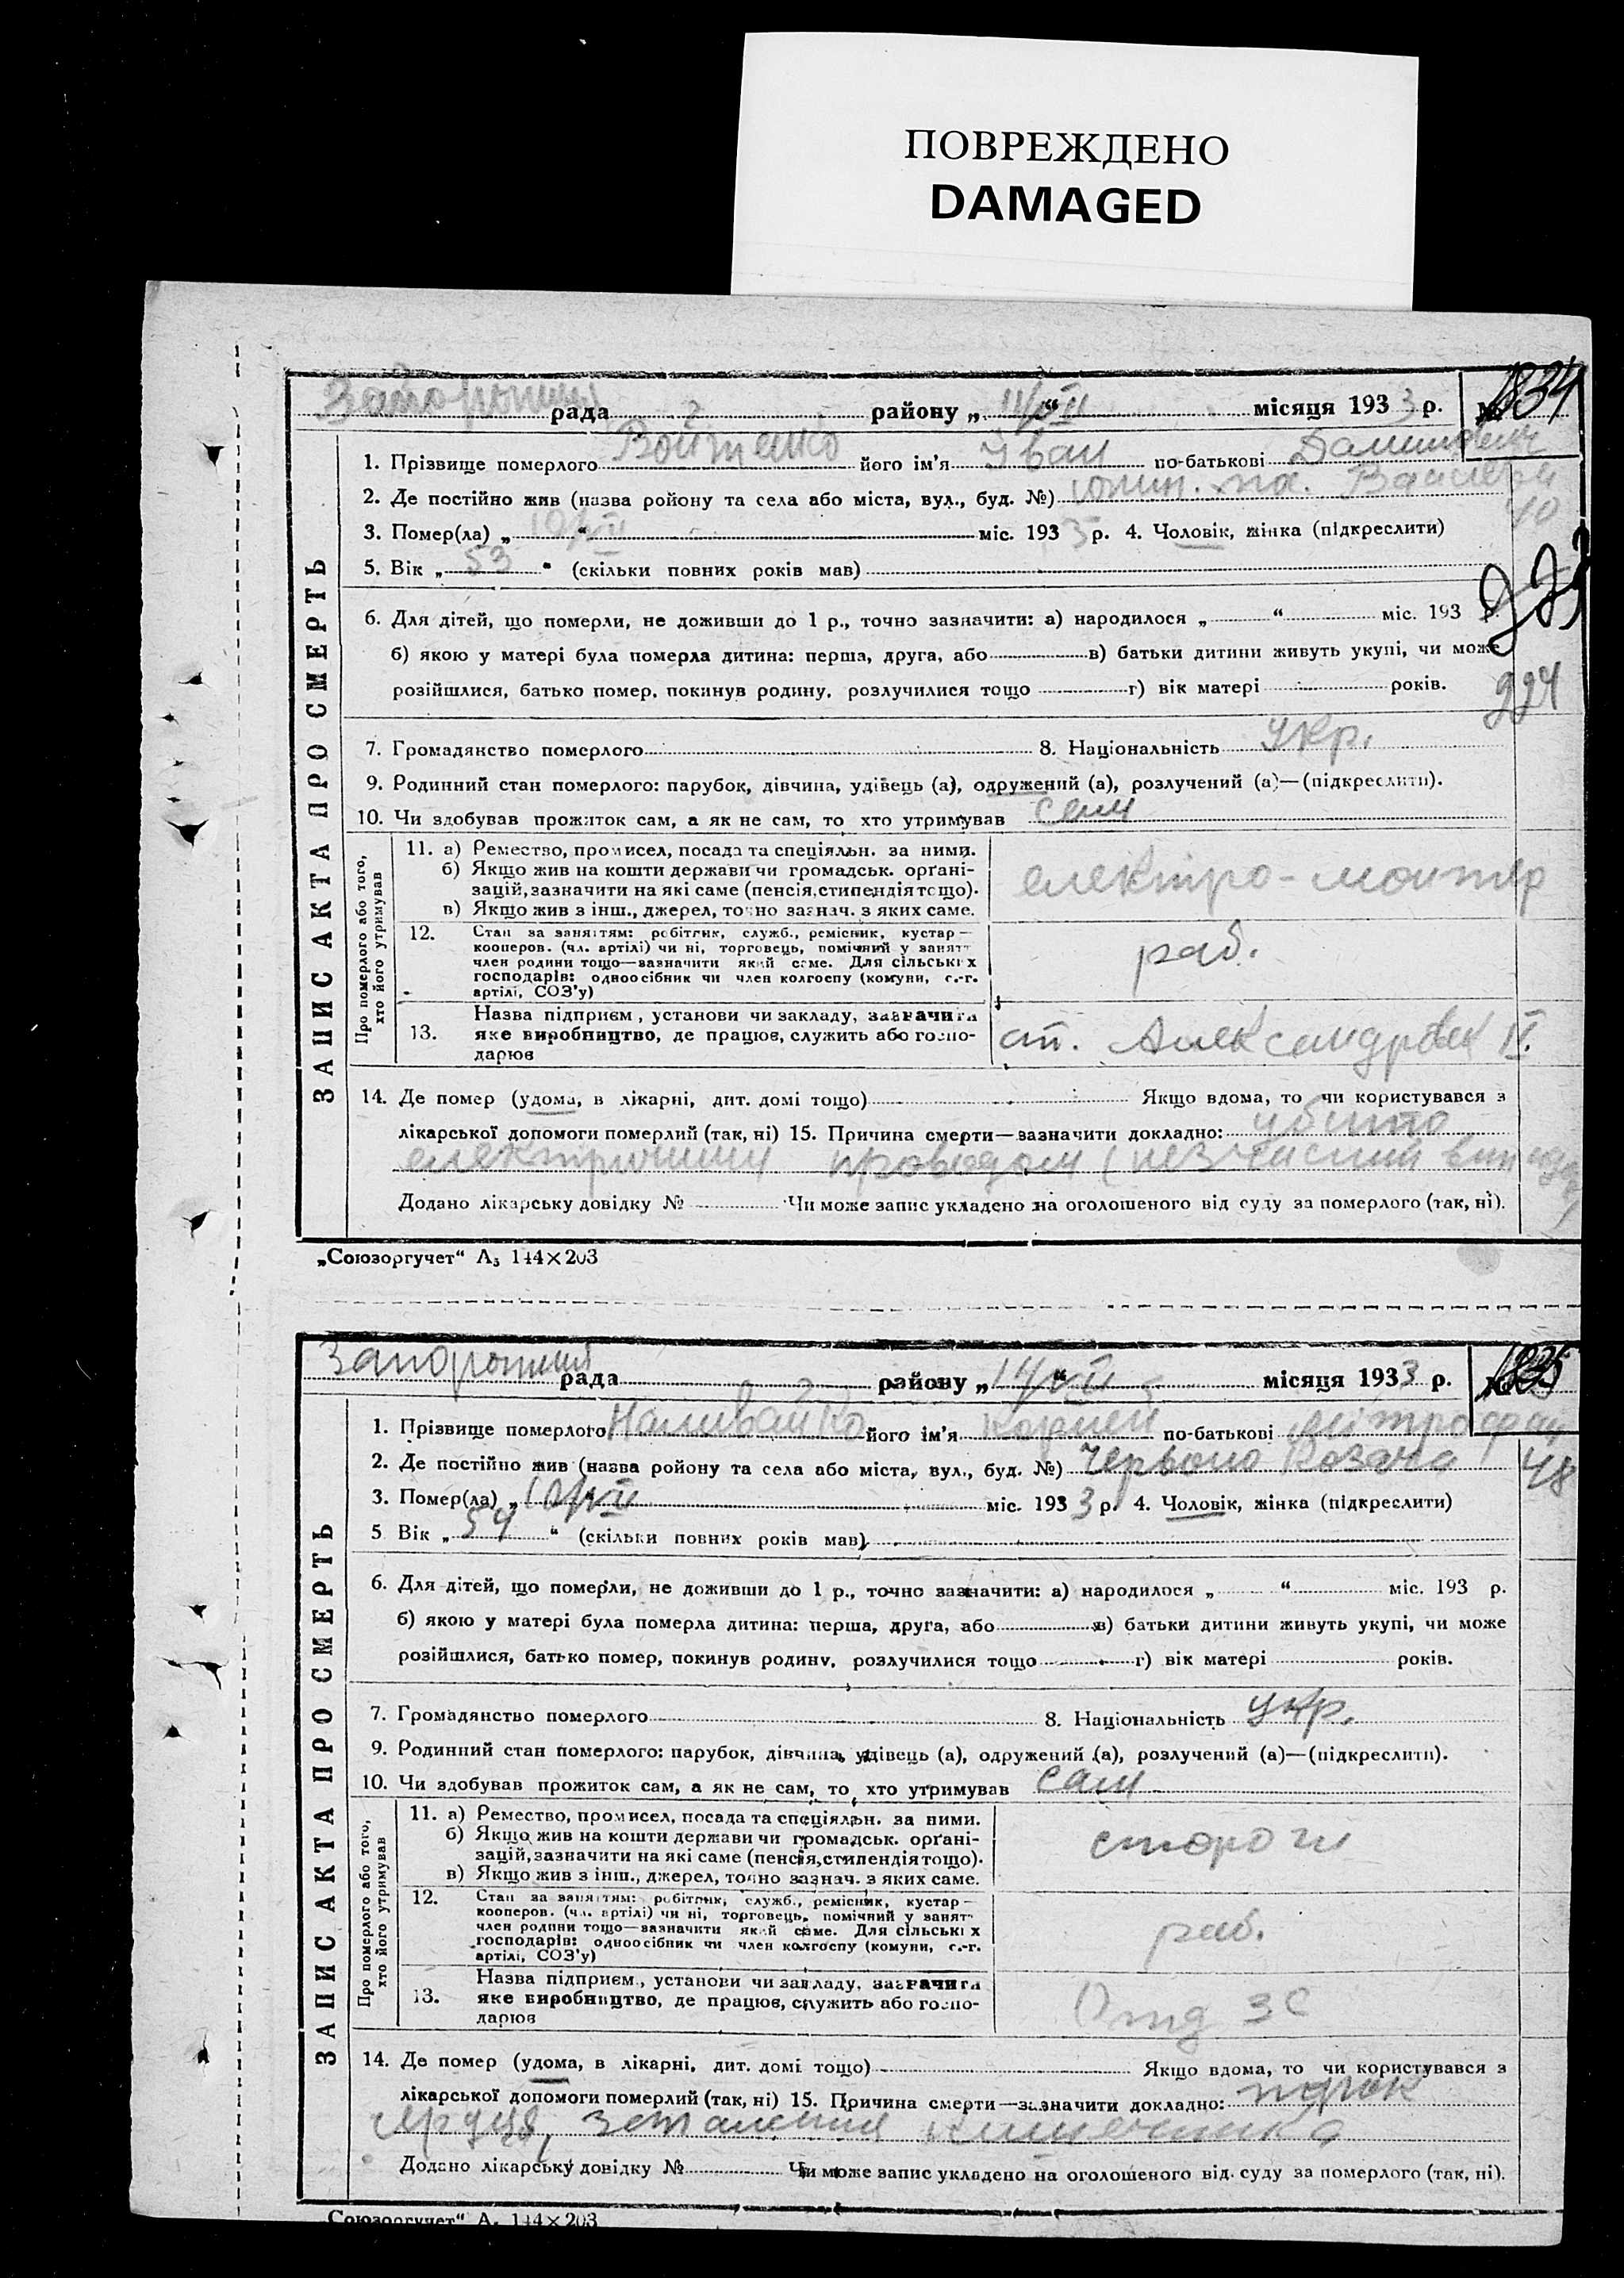 ПОВРЕЖДЕНО
DAMAGED
рада 2 району „ 11/VII “ місяця 1933 р. № 1834
ЗАПИС АКТА ПРО СМЕРТЬ
1. Прізвище померлого Войтенко його ім'я Іван по-батькові
2. Де постійно жив (назва ройону та села або міста, вул., буд. №) 40
3. Помер(ла) „ 10/VII “ міс. 1933 р. 4. Чоловік, жінка (підкреслити)
5. Вік „ 53 “ (скільки повних років мав)
6. Для дітей, що померли, не доживши до 1 р., точно зазначити: а) народилося „ “ міс. 193 р.
б) якою у матері була померла дитина: перша, друга, або в) батьки дитини живуть укупі, чи може
розійшлися, батько помер, покинув родину, розлучилися тощо г) вік матері років.
224
7. Громадянство померлого 8. Національність укр.
9. Родинний стан померлого: парубок, дівчина, удівець (а), одружений (а), розлучений (а)—(підкреслити).
10. Чи здобував прожиток сам, а як не сам, то хто утримував сам
Про померлого або того,
хто його утримував
11. а) Ремество, промисел, посада та спеціяльн. за ними.
б) Якщо жив на кошти держави чи громадськ. орґані-
зацій, зазначити на які саме (пенсія, стипендія тощо).
в) Якщо жив з інш., джерел, точно зазнач. з яких саме.
електро-монтер
12. Стан за заняттям: робітник, служб., ремісник, кустар—
кооперов. (чл. артілі) чи ні, торговець, помічний у занятт
член родини тощо—зазначити який саме. Для сільських
господарів: одноосібник чи член колгоспу (комуни, с.-г.
артілі, СОЗ'у)
раб.
13. Назва підприєм., установи чи закладу, зазначити
яке виробництво, де працюв, служить або госпо-
дарюв
ст. Александровск II.
14. Де помер (удома, в лікарні, дит. домі тощо) Якщо вдома, то чи користувався з
лікарської допомоги померлий (так, ні) 15. Причина смерти—зазначити докладно: убито
проводом (
Додано лікарську довідку № Чи може запис укладено на оголошеного від суду за померлого (так, ні).
„Союзоргучет“ А₅ 144×203
рада 2 району „ 14/VII “ місяця 1933 р. № 1835
ЗАПИС АКТА ПРО СМЕРТЬ
1. Прізвище померлого Наливайко його ім'я Корней по-батькові Мітрофан
2. Де постійно жив (назва ройону та села або міста, вул., буд. №) Червоно Козача 48
3. Помер(ла) „ 10/VII “ міс. 1933 р. 4. Чоловік, жінка (підкреслити)
5 Вік „ 54 “ (скільки повних років мав)
6. Для дітей, що померли, не доживши до 1 р., точно зазначити: а) народилося „ “ міс. 193 р.
б) якою у матері була померла дитина: перша, друга, або в) батьки дитини живуть укупі, чи може
розійшлися, батько помер, покинув родину, розлучилися тощо г) вік матері років.
7. Громадянство померлого 8. Національність укр.
9. Родинний стан померлого: парубок, дівчина, удівець (а), одружений (а), розлучений (а)—(підкреслити).
10. Чи здобував прожиток сам, а як не сам, то хто утримував сам
Про померлого або того,
хто його утримував
11. а) Ремество, промисел, посада та спеціяльн. за ними.
б) Якщо жив на кошти держави чи громадськ. орґані-
зацій, зазначити на які саме (пенсія, стипендія тощо).
в) Якщо жив з інш., джерел, точно зазнач. з яких саме.
сторож
12. Стан за заняттям: робітник, служб., ремісник, кустар—
кооперов. (чл. артілі) чи ні, торговець, помічний у занятт
член родини тощо—зазначити який саме. Для сільських
господарів: одноосібник чи член колгоспу (комуни, с.-г.
артілі, СОЗ'у)
раб.
13. Назва підприєм., установи чи закладу, зазначити
яке виробництво, де працюв, служить або госпо-
дарюв
14. Де помер (удома, в лікарні, дит. домі тощо) Якщо вдома, то чи користувався з
лікарської допомоги померлий (так, ні) 15. Причина смерти—зазначити докладно: порок
Додано лікарську довідку № Чи може запис укладено на оголошеного від суду за померлого (так, ні).
Союзоргучет“ А₅ 144×203